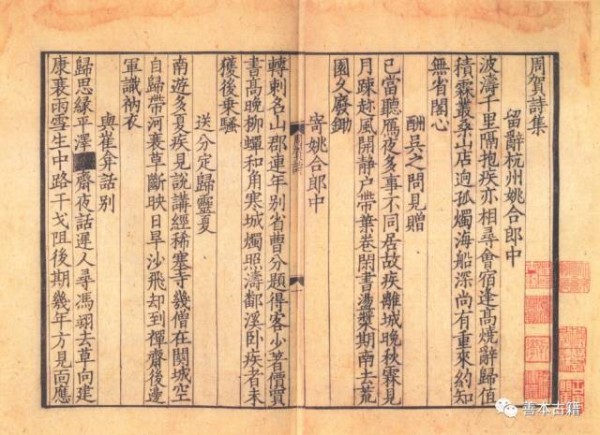 周賀詩集
留辭杭州姚合郎中
波濤千里隔抱疾亦相尋會宿逢高燒辭歸值
積霖叢桑山店迥孤燭海船深尚有重來約知
無省閣心
酬吳之問見贈
已當聽鴈夜多事不同居故疾離城晚秋霖見
月踈趂風開靜戶帶葉卷閑書盪槳期南去荒
園久廢鋤
寄姚合郎中
轉刺名山郡連年別省曹分題得客少著價買
書高晚柳蟬和角寒城燭照濤鄱溪臥疾者未
獲後乗騷
送分定歸靈夏
南遊多夏疾見說講經稀塞寺幾僧在關城空
自歸帶河衰草斷映日旱沙飛却到禪齋後邊
軍識衲衣
與崔弇話別
歸思緣平澤齋夜話遲人尋馮翊去草向建
康衰雨雪生中路干戈阻後期幾年方見面應
善本古籍